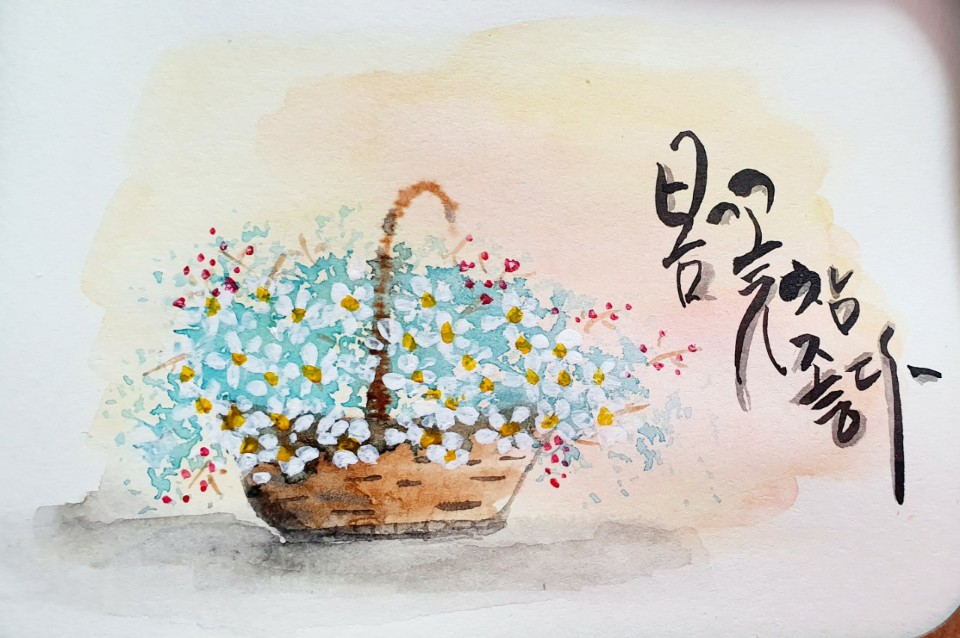 봄꽃참
좋다